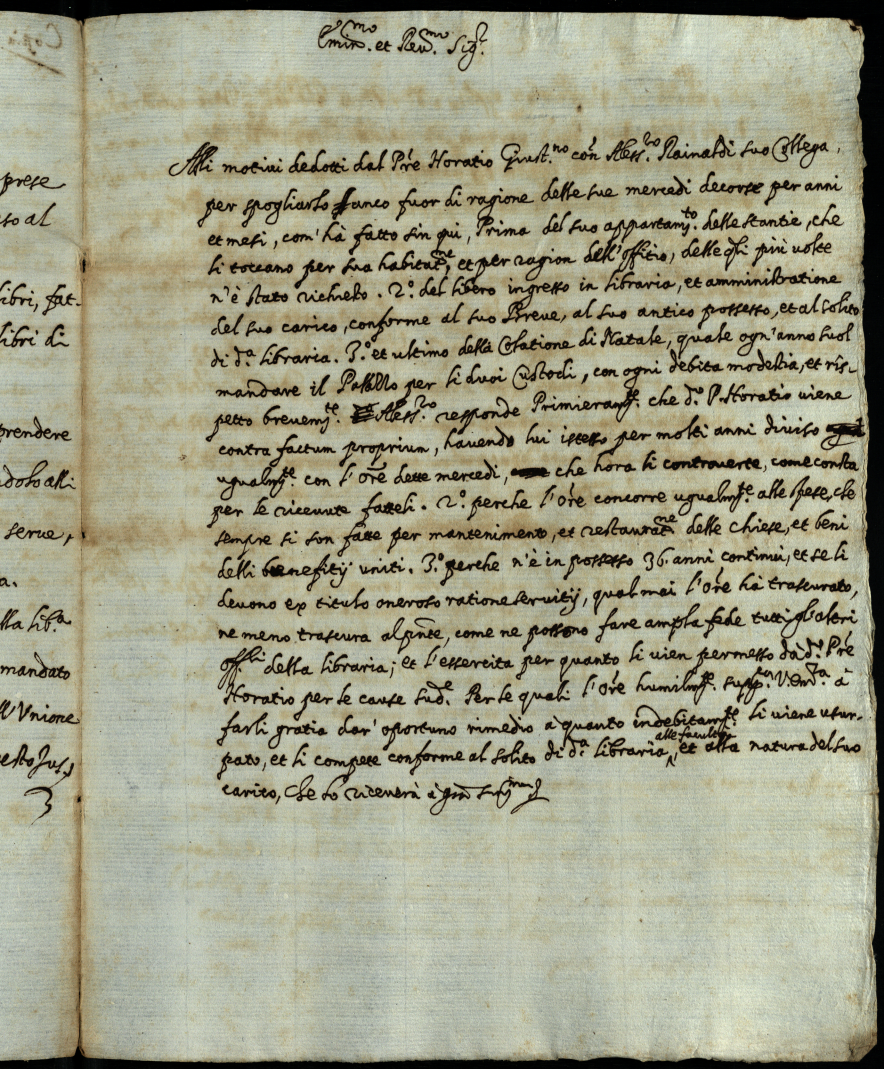 Emin.mo et Reu.mo Sig.r
Alli motivi dedotti dal P're Horatio Giust.no con Aless.ro Rainaldi suo Collega,
per spogliarlo anco fuor di ragione delle sue mercedi decorse per anni
et mesi, com'hà fatto sin qui, Prima del suo appartam.to delle stantie, che
li toccano per sua habitat.ne, et per ragion dell'offitio, delle q'li più uolte
n'è stato richiesto. 2.o del libero ingresso in libraria, et amministratione
del suo carico, conforme al suo Breue, al suo antico possesso, et al solito
di d.a libraria. 3.o et ultimo della Colatione di Natale, quale ogn'anno suol
mandare il Palazzo per li duoi Custodi, con ogni debita modestia, et ris-
petto breuem.te. Aless.ro responde Primieram.te. che d.o P. Horatio uiene
contra factum proprium, hauendo lui istesso per molti anni diuiso
ugualm.te con l'ore dette mercedi, che hora li controuerte, come consta
per le riceuute fatteli. 2.o perche l'ore concorre ugualm.te alle spese, che
sempre si son fatte per mantenimento, et restaurat.ne delle chiese, et beni
delli benefitij uniti. 3.o perche n'è in possesso 36. anni continui, et se li
deuono ex titulo oneroso ratione seruitij, qual mai l'ore hà trascurato,
ne meno trascura al p'nte, come ne possono fare ampla fede tutti gl'altri
off.li della libraria; et l'essercita per quanto li uien permesso da d.o P're
Horatio per le cause sud.e Per le quali l'ore humilm.te supp.ca V. Em.za à
farli gratia dar' oportuno rimedio à quanto indebitam.te li uiene usur-
pato, et li compete conforme al solito di d.a libraria, alle facultà et alla natura del suo
carico, che lo riceuerà à
prese
so al
libri, fat-
libri di
prendere
dolo alli
serue,
a.
lla lib.a
mandato
ll'Vnione
esto Jus,